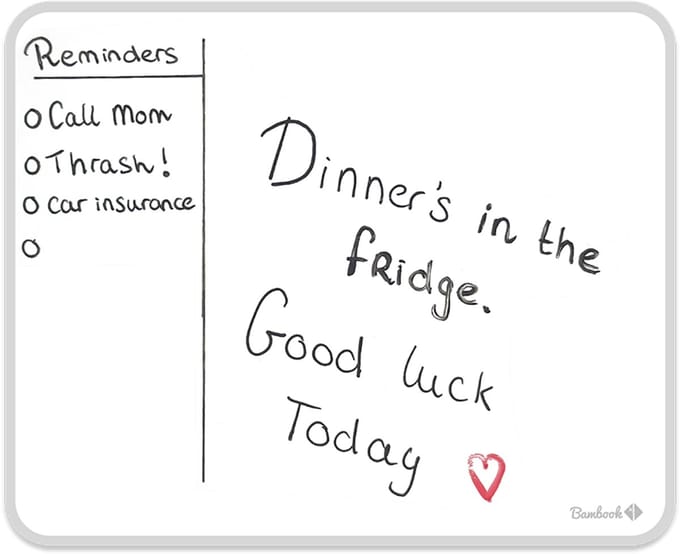 Reminders
o Call Mom
o Thrash!
o Car insurance
o
Dinner's in the
fRidge.
Good luck
Today ♥
Bambook